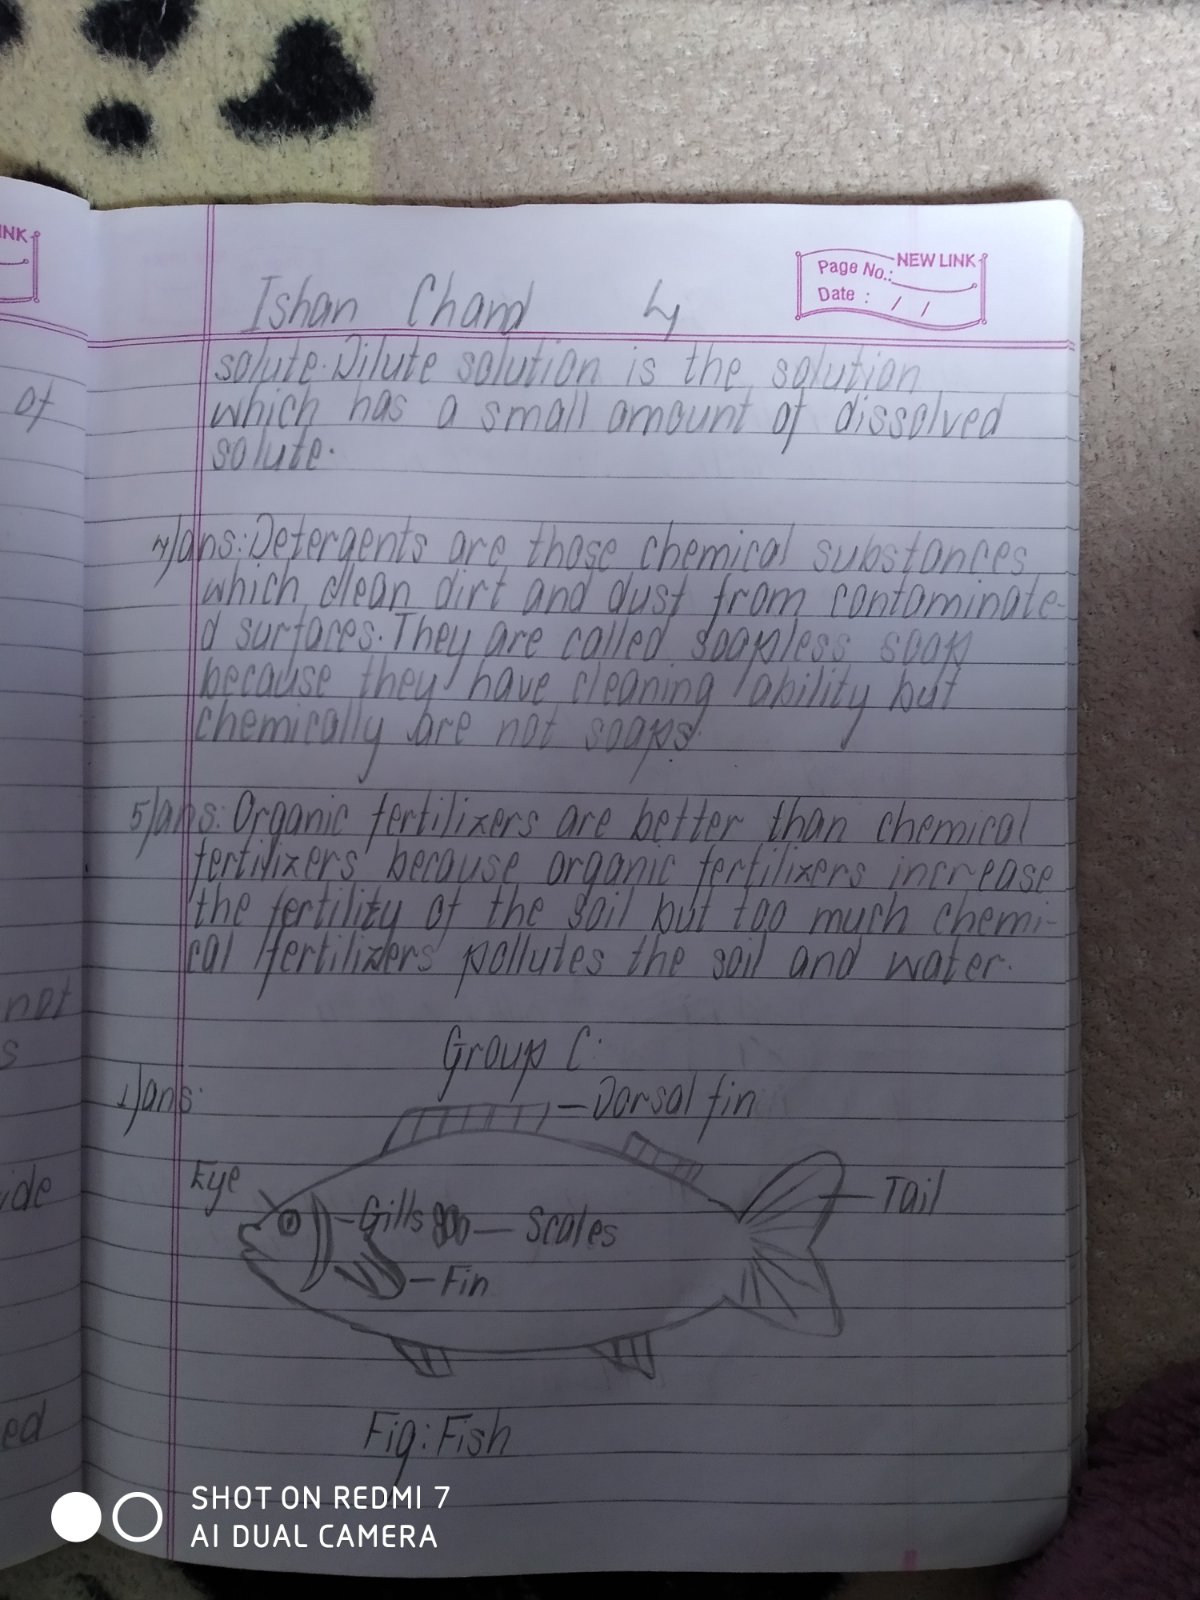 INK
of
not
s
ide
ed
NEW LINK
Page No.:
Date : / /
Ishan Chand 4
solute. Dilute solution is the solution
which has a small amount of dissolved
solute.
4)ans: Detergents are those chemical substances
which clean dirt and dust from contaminate-
d surfaces. They are called soapless soap
because they have cleaning ability but
chemically are not soaps.
5)ans: Organic fertilizers are better than chemical
fertilizers because organic fertilizers increase
the fertility of the soil but too much chemi-
cal fertilizers pollutes the soil and water.
Group C.
1)ans:
Dorsal fin
Eye
Tail
Gills
Scales
Fin
Fig: Fish
SHOT ON REDMI 7
AI DUAL CAMERA